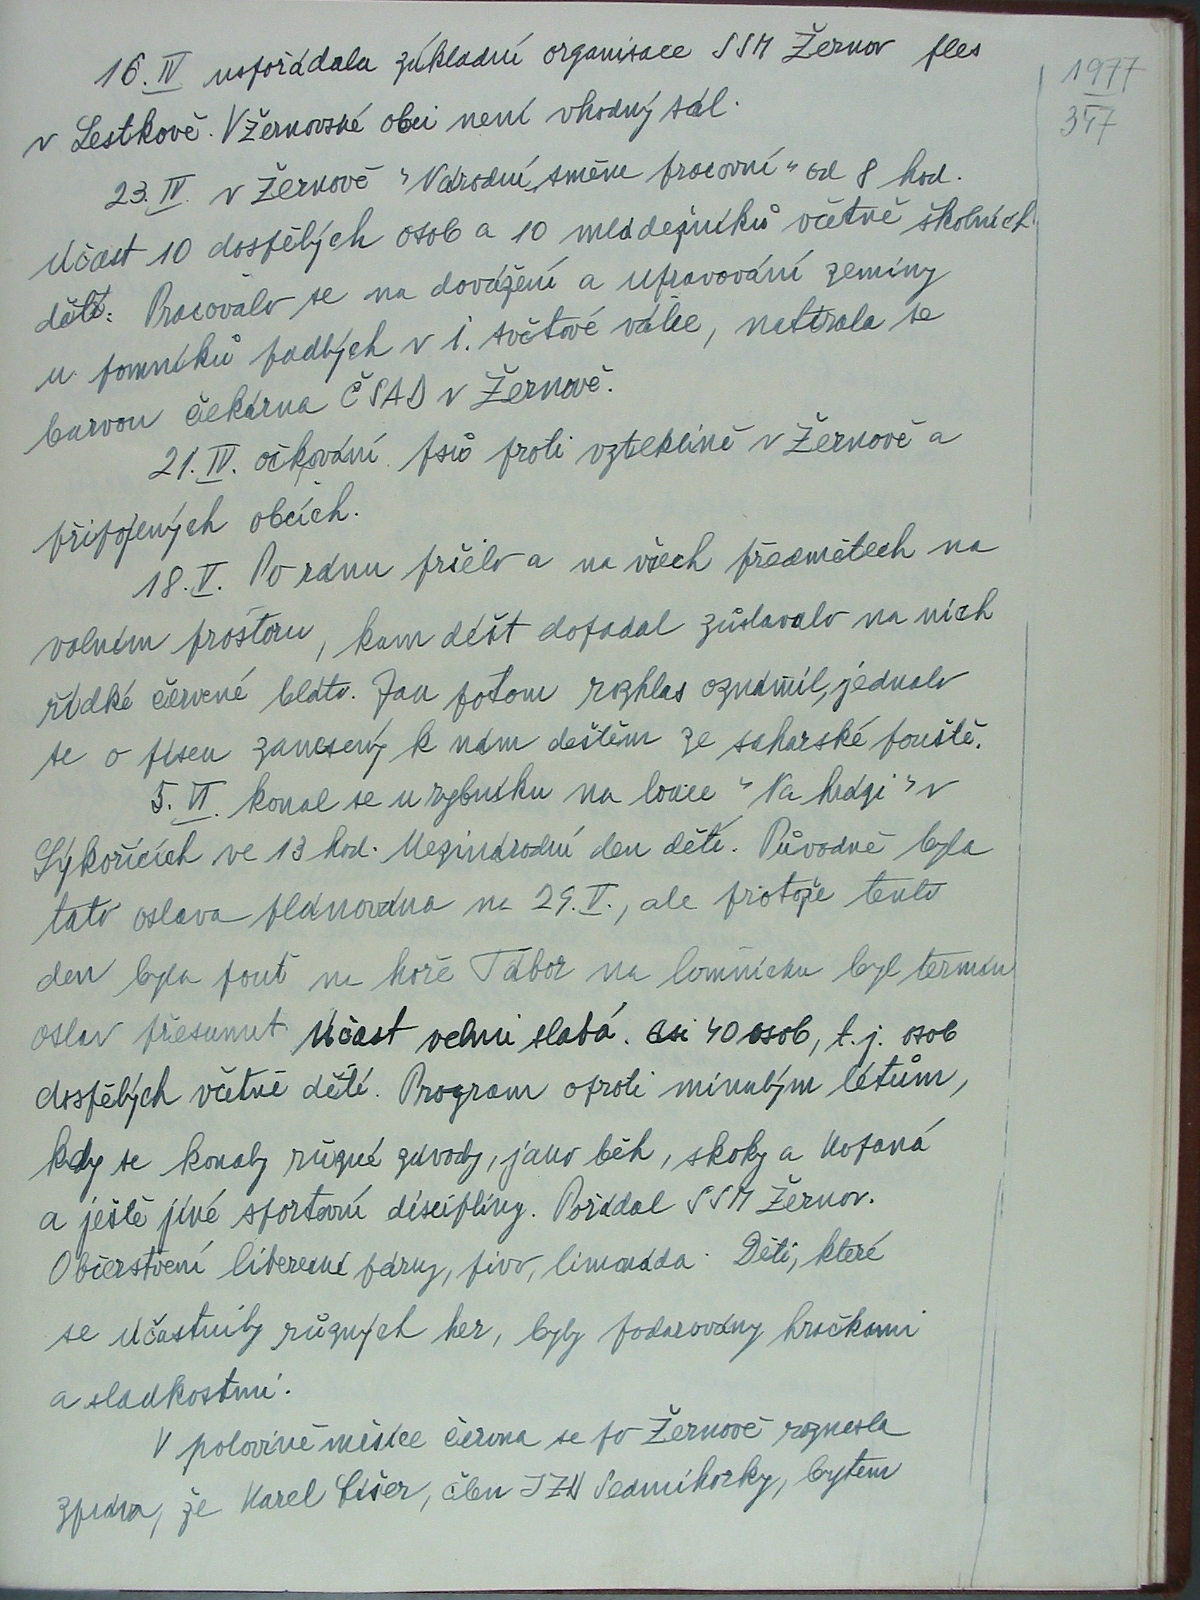 1977
347
16. IV uspořádala základní organisace SSM Žernov ples
v Lestkově. V Žernovské obci není vhodný sál.
23. IV. v Žernově "Národní směnu pracovní" od 8 hod.
Účast 10 dospělých osob a 10 mládežníků včetně školních
dětí. Pracovalo se na dovážení a upravování zeminy
u pomníků padlých v 1. světové válce, natírala se
barvou čekárna ČSAD v Žernově.
21. IV. očkování psů proti vzteklině v Žernově a
připojených obcích.
18. V. Po ránu pršelo a na všech předmětech na
volném prostoru, kam déšt dopadal zůstavalo na nich
řídké červené bláto. Jak potom rozhlas oznámil, jednalo
se o písek zanesený k nám deštěm ze saharské pouště.
5. VI. konal se u rybníku na louce "Na hrázi" v
Sýkořicích ve 13 hod. Mezinárodní den dětí. Původně byla
tato oslava plánována na 29. V., ale protože tento
den byla pouť na hoře Tábor na lomnicku byl termín
oslav přesunut. Účast velmi slabá. Asi 40 osob, t. j. osob
dospělých včetně dětí. Program oproti minulým létům,
kdy se konaly různé závody, jako běh, skoky a kopaná
a ještě jiné sportovní disciplíny. Pořádal SSM Žernov.
Občerstvení liberecké párky, pivo, limonáda. Děti, které
se účastnily různých her, byly podarovány hračkami
a sladkostmi.
V polovině měsíce června se po Žernově roznesla
zpráva, že Karel Cišer, člen JZD Sedmihorky, bytem